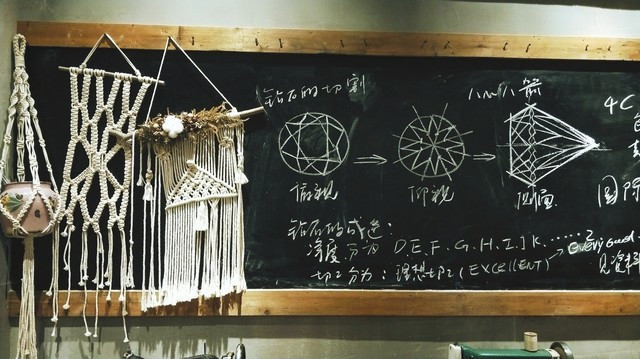 钻石的切割
八心八箭
4C
俯视
仰视
侧面
国际
钻石的
净度 分为 D.E.F.G.H.I.J K......?
切工 分为: 理想切工 (EXCELLENT) → Very Good